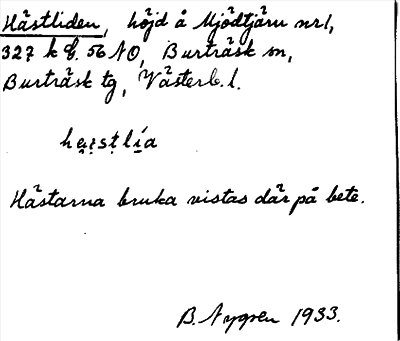 Hästliden, höjd å Mjödtjärn nr 1,
327 k E. 56 NO, Burträsk sn,
Burträsk tg, Västerb. l.
Hästarna bruka vistas där på bete.
B. Nygren 1933.